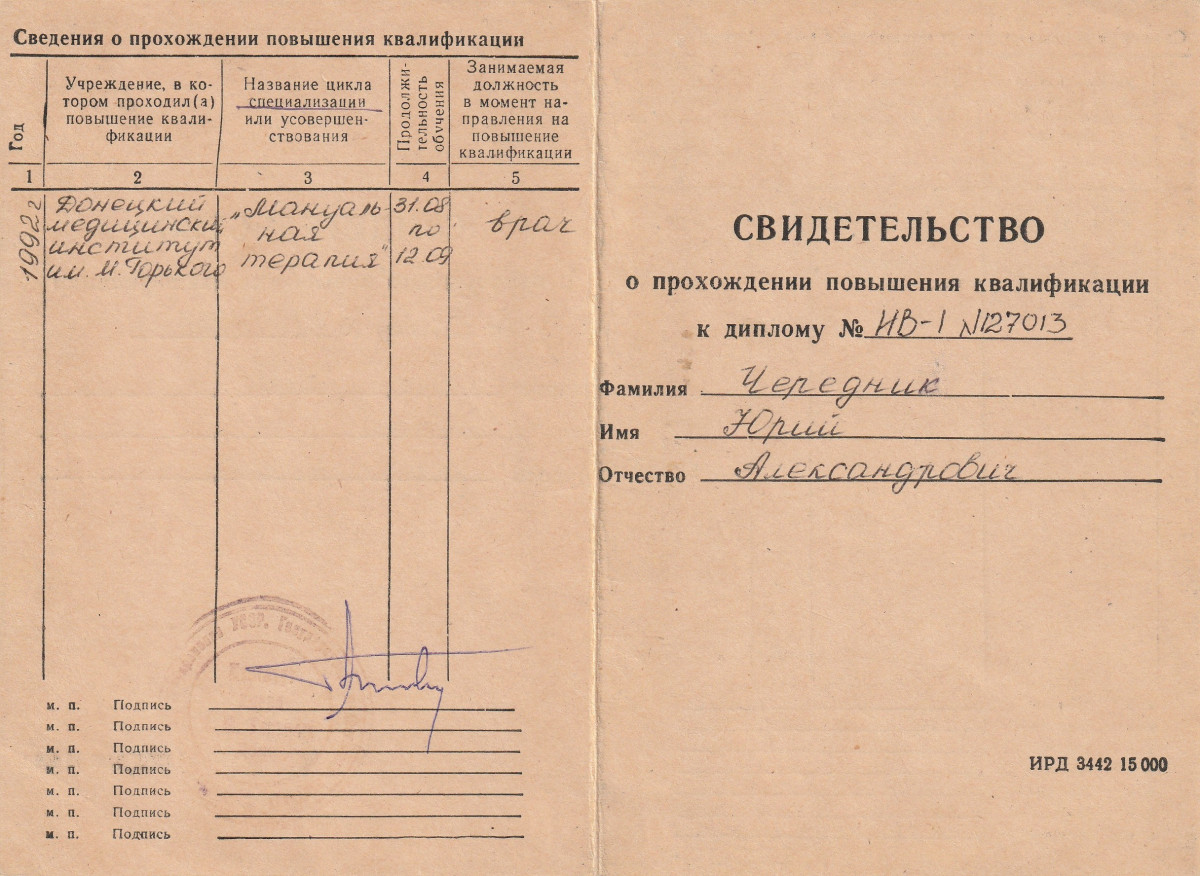 Сведения о прохождении повышения квалификации
Год
Учреждение, в ко-
тором проходил(а)
повышение квали-
фикации
Название цикла
специализации
или усовершен-
ствования
Продолжи-
тельность
обучения
Занимаемая
должность
в момент на-
правления на
повышение
квалификации
1 2 3 4 5
1992г
Донецкий
медицинский
институт
им. М. Горького
„Мануаль-
ная
терапия"
31.08
по
12.09
врач
м. п. Подпись
м. п. Подпись
м. п. Подпись
м. п. Подпись
м. п. Подпись
м. п. Подпись
м. п. Подпись
СВИДЕТЕЛЬСТВО
о прохождении повышения квалификации
к диплому № ИВ-I №127013
Фамилия Чередник
Имя Юрий
Отчество Александрович
ИРД 3442 15 000